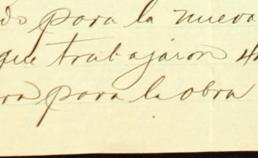 do para la nueva
que trabajaron 4
ra para la obra